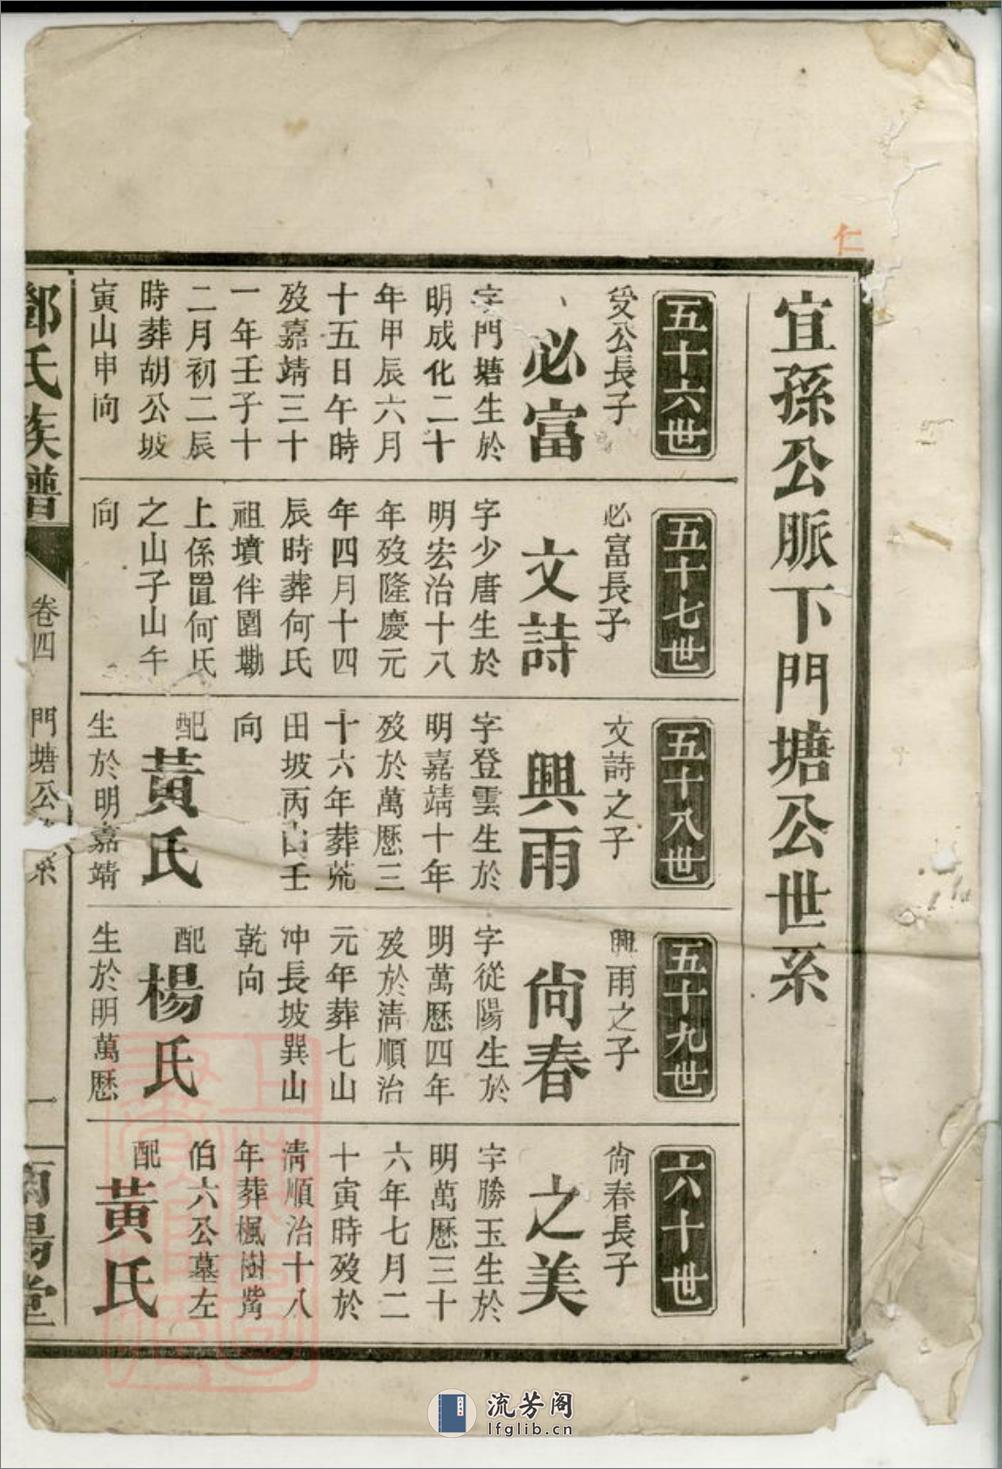 仁
宜孫公脈下門塘公世系
五十六世
受公長子
必富
字門塘生於
明成化二十
年甲辰六月
十五日午時
歿嘉靖三十
一年壬子十
二月初二辰
時葬胡公坡
寅山申向
五十七世
必富長子
文詩
字少唐生於
明宏治十八
年歿隆慶元
年四月十四
辰時葬何氏
祖墳伴園墈
上係置何氏
之山子山午
向
五十八世
文詩之子
興雨
字登雲生於
明嘉靖十年
歿於萬曆三
十六年葬荒
田坡丙山壬
向
配
黃氏
生於明嘉靖
五十九世
興雨之子
尙春
字從陽生於
明萬曆四年
歿於淸順治
元年葬七山
冲長坡巽山
乾向
配
楊氏
生於明萬曆
六十世
尙春長子
之美
字勝玉生於
明萬曆三十
六年七月二
十寅時歿於
淸順治十八
年葬楓樹嘴
伯六公墓左
配
黃氏
鄧氏族譜
卷四
門塘公 系
一
南陽堂
流芳阁
lfglib.cn